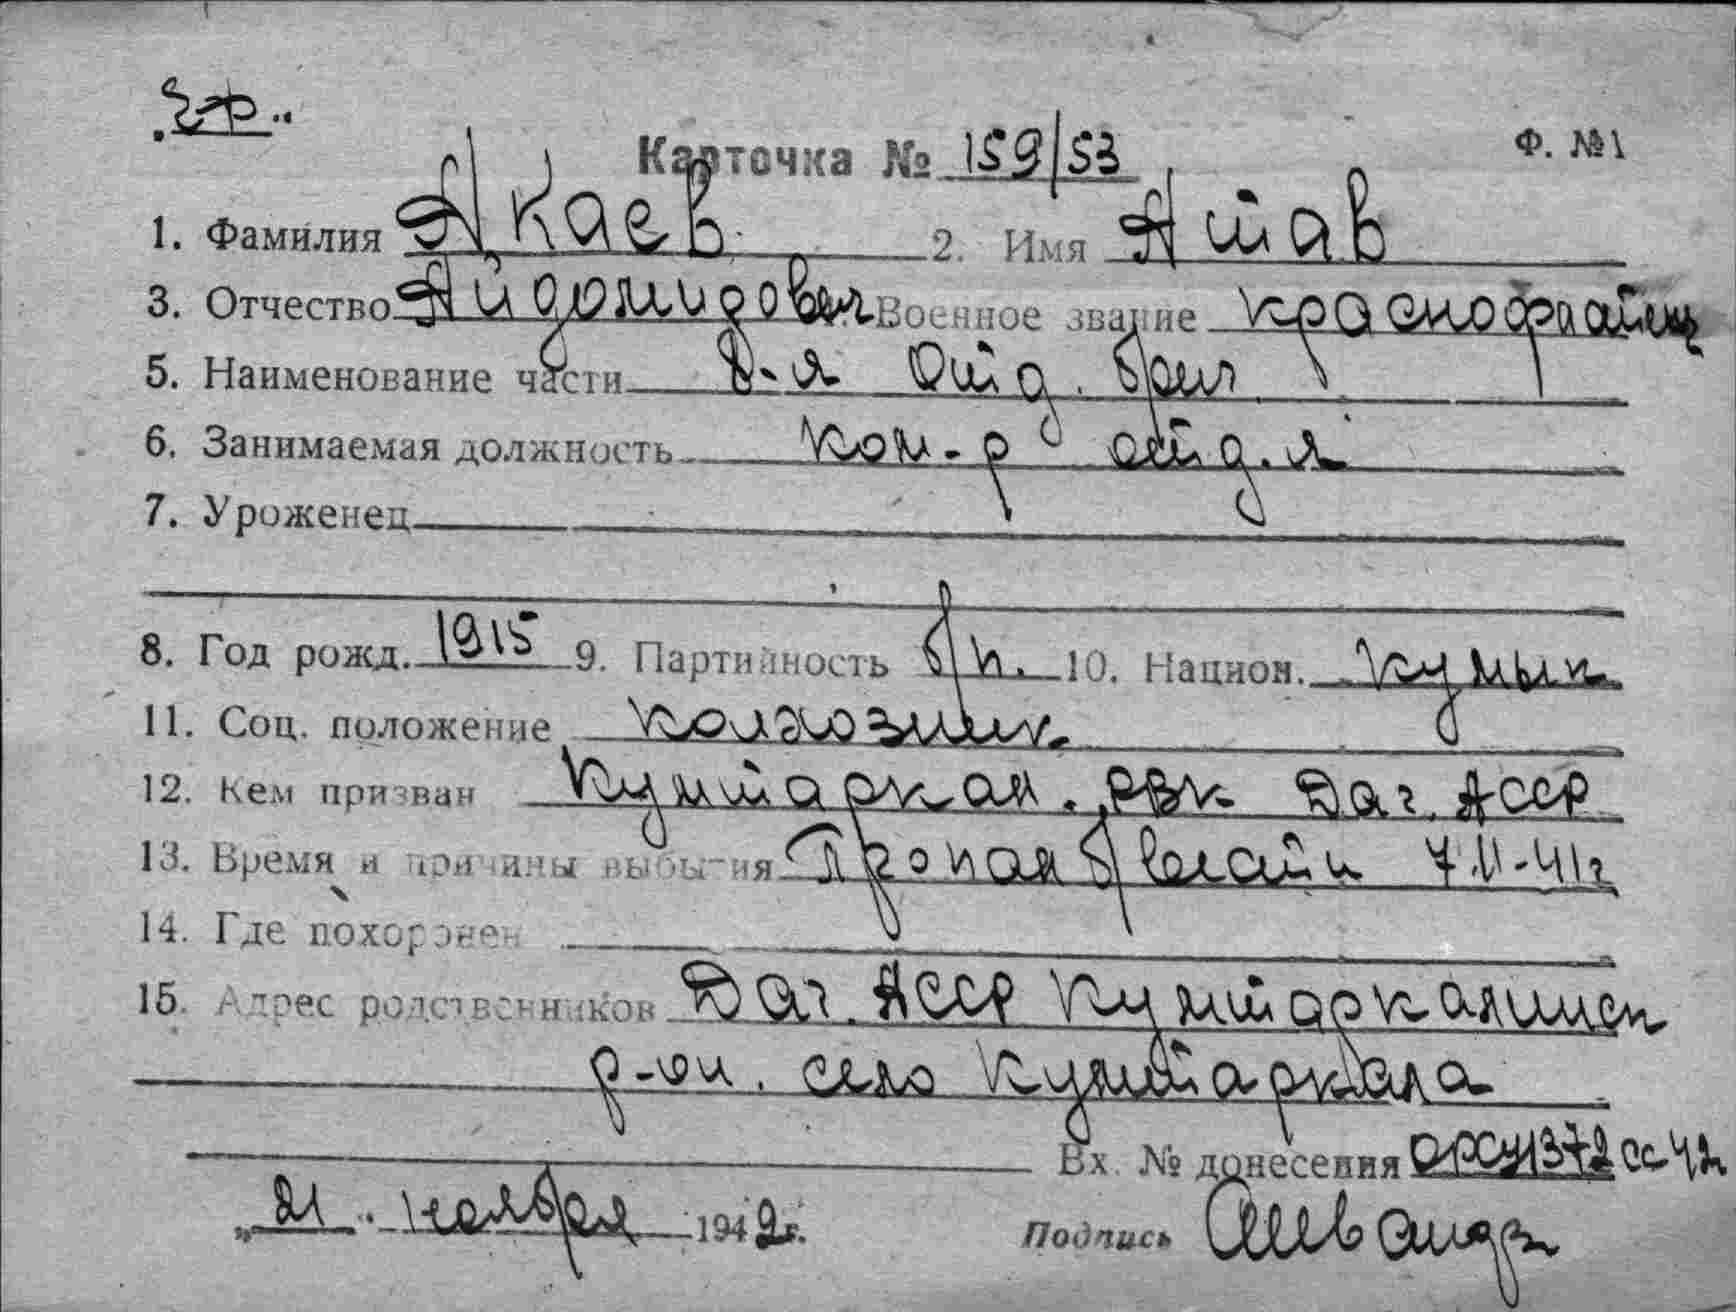 Карточка № 159/53 Ф. №1
1. Фамилия Акаев 2. Имя Атав
3. Отчество Военное звание краснофлотец
5. Наименование части 8-я Отд. бриг.
6. Занимаемая должность ком-р отд-я
7. Уроженец
8. Год рожд. 1915 9. Партийность б/п. 10. Национ. кумык
11. Соц. положение колхозник
12. Кем призван Кумтаркал. РВК Даг. АССР
13. Время и причины выбытия Пропал б/вести 7.11-41г
14. Где похоронен
15. Адрес родственников Даг. АССР Кумтаркалинск
р-он. село Кумтаркала
Вх. № донесения 1372 сс-42
„21". ноября 1942г.
Подпись